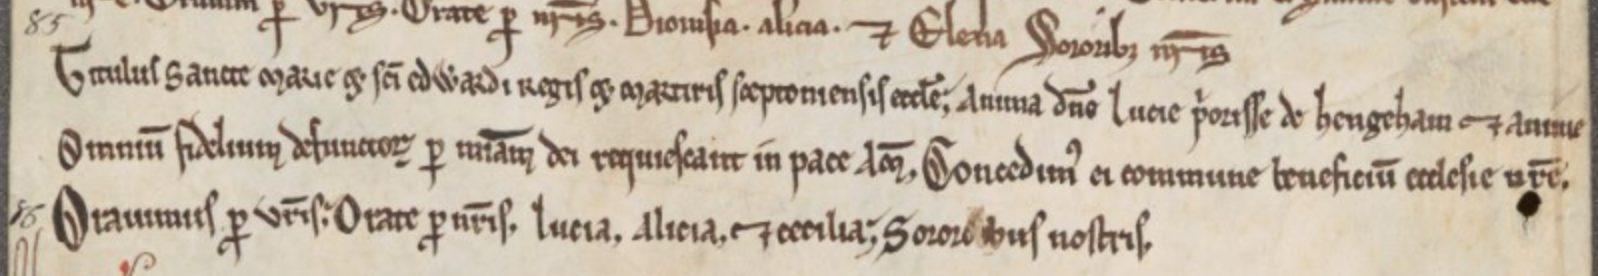 85
Orate ꝑ nr̄is. Dionisia. alicia. ⁊ Elena Sororibꝫ nr̄is
Titulus Sancte Marie ⁊ sc̄i edwardi regis ⁊ martiris sceptoniensis eccle᷒; Anima dn̄e Lucie p̓orisse de hengeham ⁊ anime
Omniū fidelium defunctoꝝ ꝑ miām dei requiescant in pace Am̄. Concedim᷒ ei commune beneficiū ecclesie nr̄e.
86 Orauimus ꝑ vr̄is. Orate ꝑ nr̄is. Lucia, Alicia, ⁊ cecilia; Sororibus nostris.